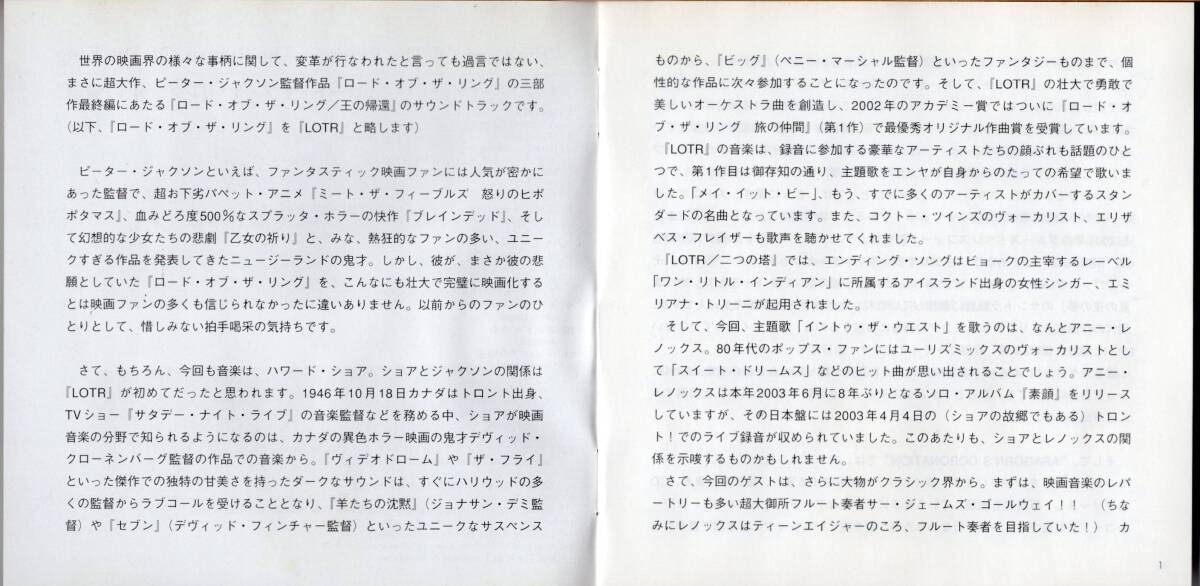 世界の映画界の様々な事柄に関して、変革が行なわれたと言っても過言ではない、
まさに超大作、ピーター・ジャクソン監督作品『ロード・オブ・ザ・リング』の三部
作最終編にあたる『ロード・オブ・ザ・リング／王の帰還』のサウンドトラックです。
（以下、『ロード・オブ・ザ・リング』を『LOTR』と略します）
ピーター・ジャクソンといえば、ファンタスティック映画ファンには人気が密かに
あった監督で、超お下劣パペット・アニメ『ミート・ザ・フィーブルズ　怒りのヒポ
ポタマス』、血みどろ度500％なスプラッタ・ホラーの快作『ブレインデッド』、そし
て幻想的な少女たちの悲劇『乙女の祈り』と、みな、熱狂的なファンの多い、ユニー
クすぎる作品を発表してきたニュージーランドの鬼才。しかし、彼が、まさか彼の悲
願としていた『ロード・オブ・ザ・リング』を、こんなにも壮大で完璧に映画化する
とは映画ファンの多くも信じられなかったに違いありません。以前からのファンのひ
とりとして、惜しみない拍手喝采の気持ちです。
さて、もちろん、今回も音楽は、ハワード・ショア。ショアとジャクソンの関係は
『LOTR』が初めてだったと思われます。1946年10月18日カナダはトロント出身、
TVショー『サタデー・ナイト・ライブ』の音楽監督などを務める中、ショアが映画
音楽の分野で知られるようになるのは、カナダの異色ホラー映画の鬼才デヴィッド・
クローネンバーグ監督の作品での音楽から。『ヴィデオドローム』や『ザ・フライ』
といった傑作での独特の甘美さを持ったダークなサウンドは、すぐにハリウッドの多
くの監督からラブコールを受けることとなり、『羊たちの沈黙』（ジョナサン・デミ監
督）や『セブン』（デヴィッド・フィンチャー監督）といったユニークなサスペンス
ものから、『ビッグ』（ペニー・マーシャル監督）といったファンタジーものまで、個
性的な作品に次々参加することになったのです。そして、『LOTR』の壮大で勇敢で
美しいオーケストラ曲を創造し、2002年のアカデミー賞ではついに『ロード・オ
ブ・ザ・リング　旅の仲間』（第1作）で最優秀オリジナル作曲賞を受賞しています。
『LOTR』の音楽は、録音に参加する豪華なアーティストたちの顔ぶれも話題のひと
つで、第1作目は御存知の通り、主題歌をエンヤが自身からのたっての希望で歌いま
した。「メイ・イット・ビー」、もう、すでに多くのアーティストがカバーするスタン
ダードの名曲となっています。また、コクトー・ツインズのヴォーカリスト、エリザ
ベス・フレイザーも歌声を聴かせてくれました。
『LOTR／二つの塔』では、エンディング・ソングはビョークの主宰するレーベル
「ワン・リトル・インディアン」に所属するアイスランド出身の女性シンガー、エミ
リアナ・トリーニが起用されました。
そして、今回、主題歌「イントゥ・ザ・ウエスト」を歌うのは、なんとアニー・レ
ノックス。80年代のポップス・ファンにはユーリズミックスのヴォーカリストとし
て「スイート・ドリームス」などのヒット曲が思い出されることでしょう。アニー・
レノックスは本年2003年6月に8年ぶりとなるソロ・アルバム『素顔』をリリース
していますが、その日本盤には2003年4月4日の（ショアの故郷でもある）トロン
ト！でのライブ録音が収められていました。このあたりも、ショアとレノックスの関
係を示唆するものかもしれません。
さて、今回のゲストは、さらに大物がクラシック界から。まずは、映画音楽のレパ
ートリーも多い超大御所フルート奏者サー・ジェームズ・ゴールウェイ！！　（ちな
みにレノックスはティーンエイジャーのころ、フルート奏者を目指していた！）　カ
1